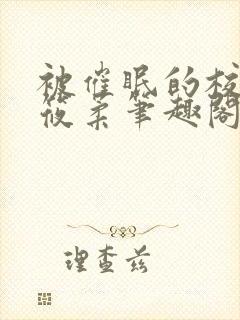 被催眠的校
筱柔笔趣阁
理查兹